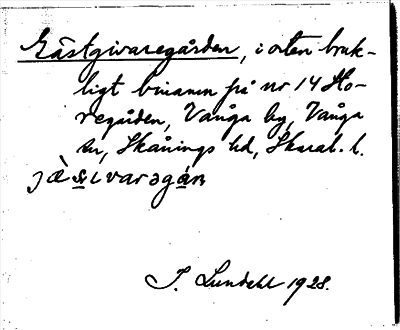 Gästgivaregården, i orten bruk-
ligt binamn på nr 14 Sto-
regården, Vånga by, Vånga
sn, Skånings hd, Skarab. l.
jä̀sivarəgán
I. Lundahl 1928.